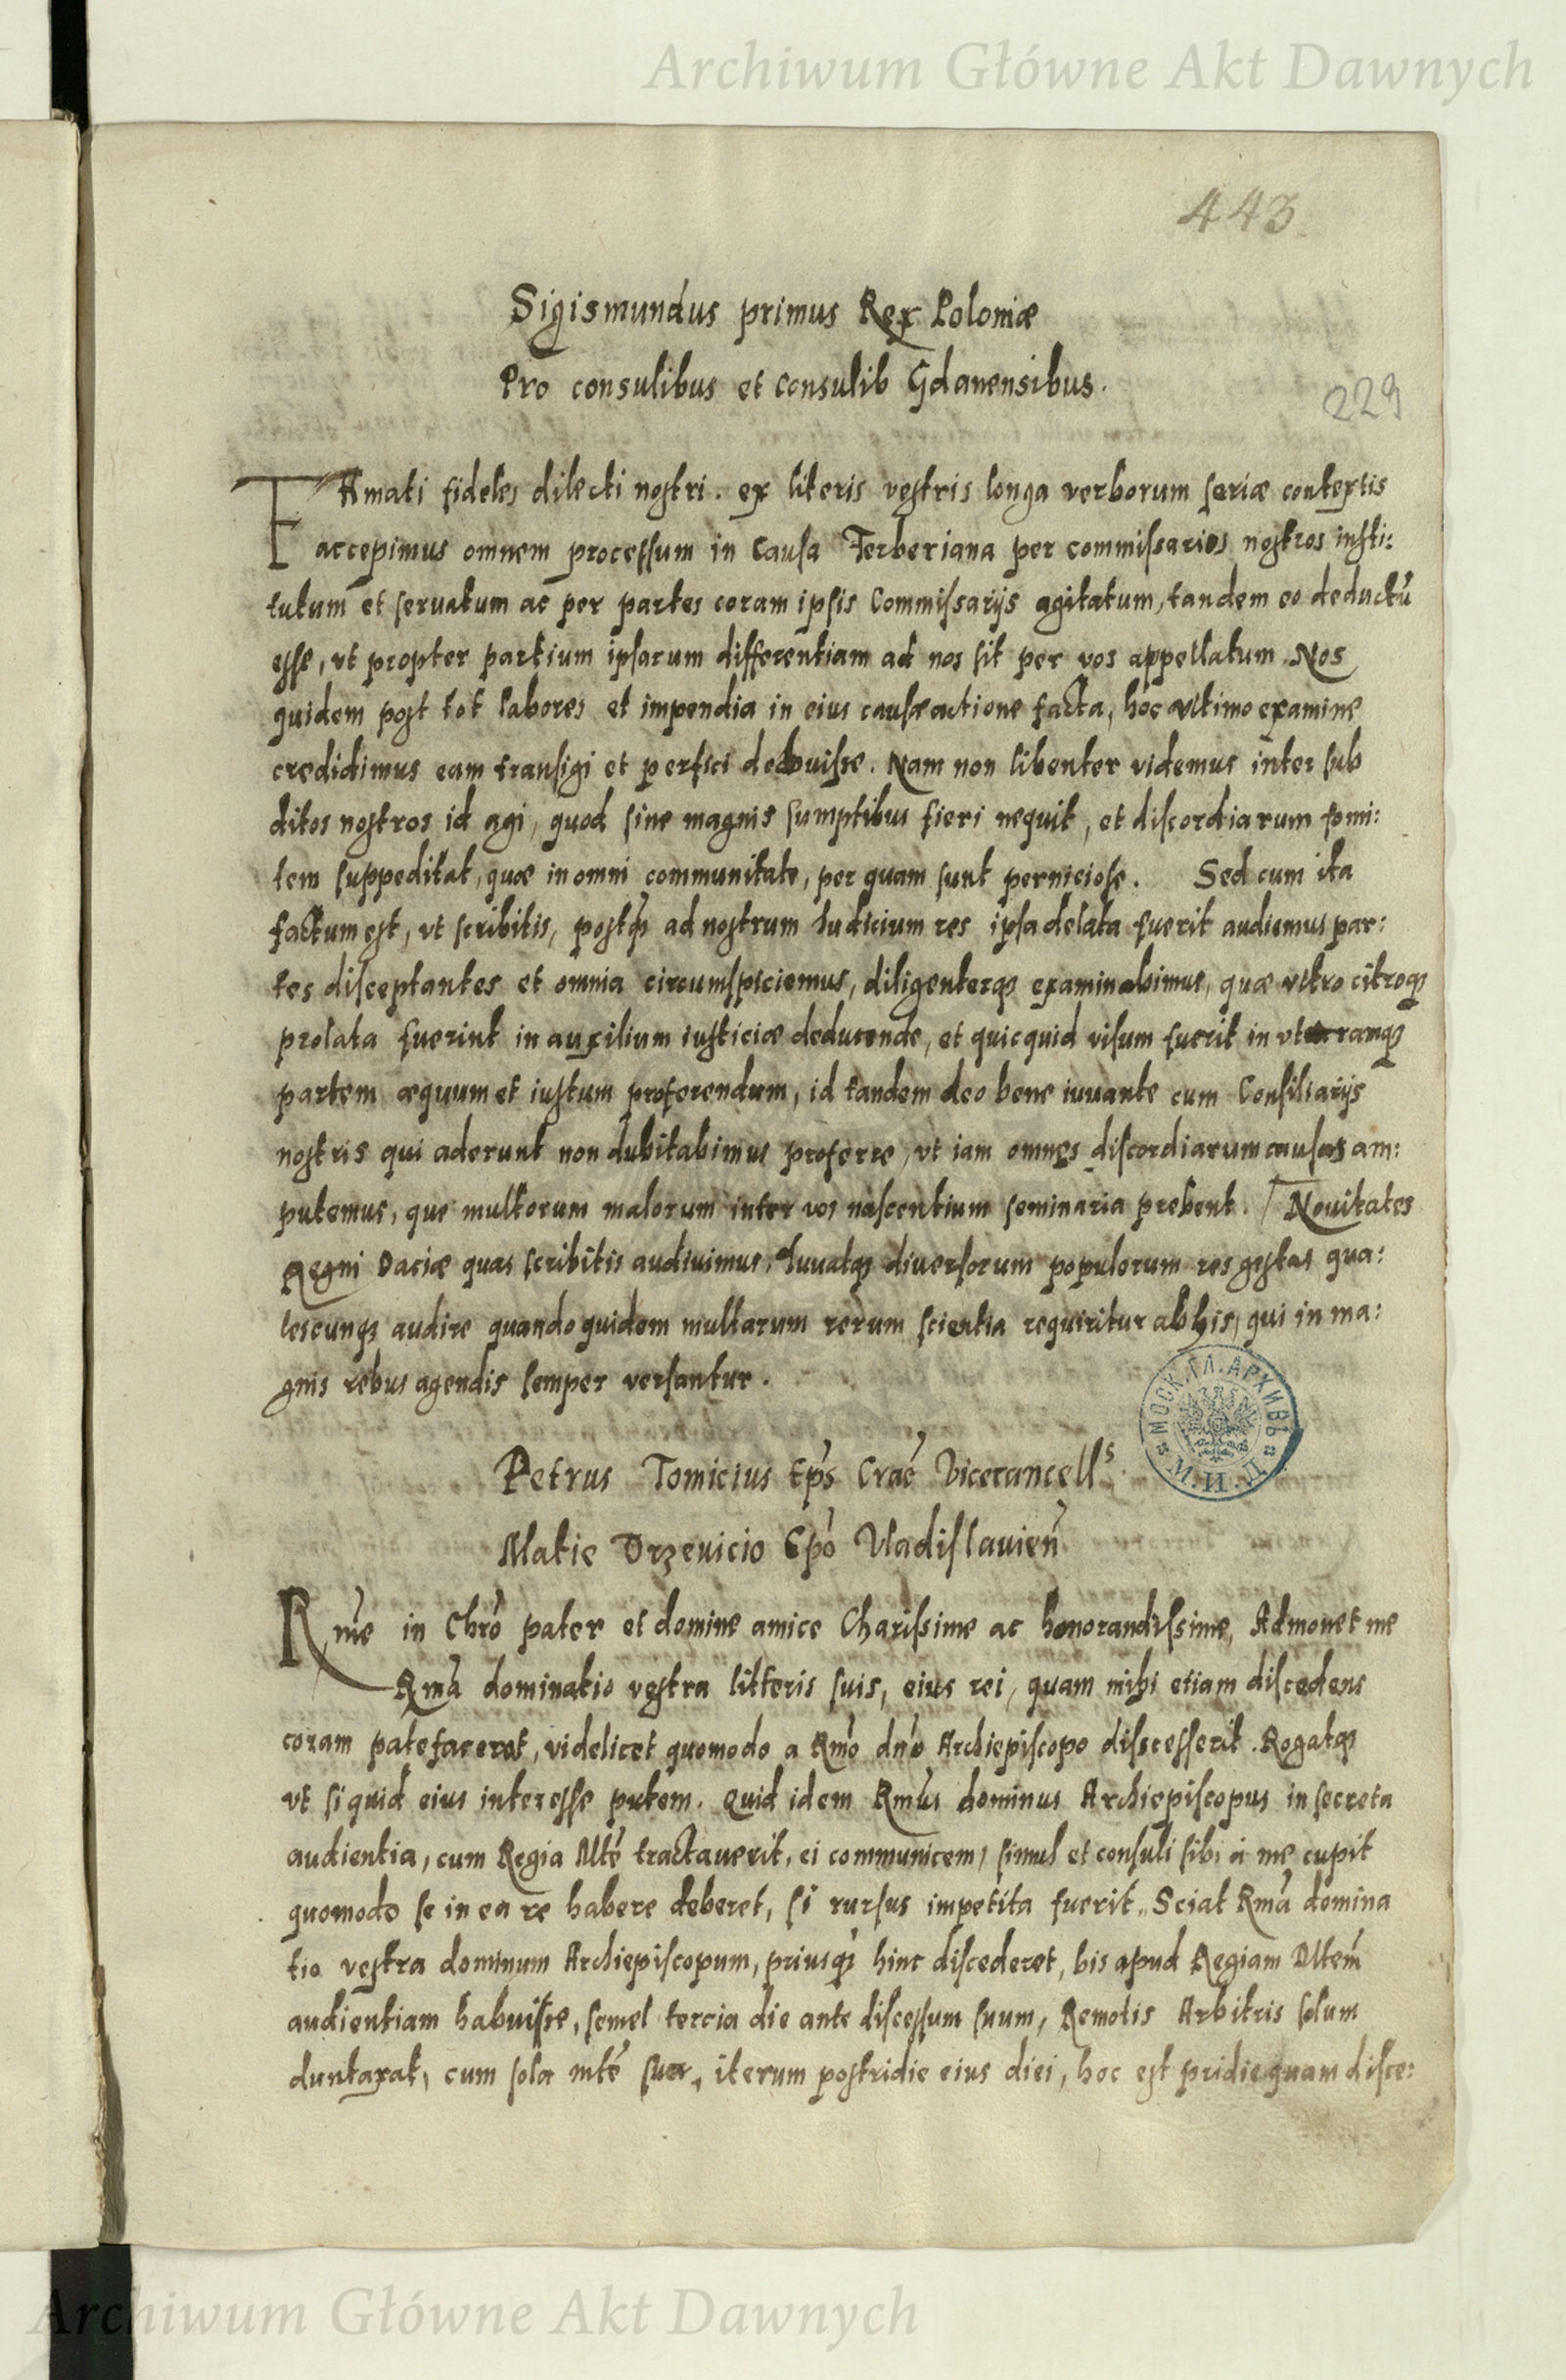 Archiwum Główne Akt Dawnych
443
Sigismundus primus Rex Poloniæ
Pro consulibus et consulib Gdanensibus.
229
FAmati fideles dilecti nostri. ex literis vestris longa verborum seriæ contextis
accepimus omnem processum in causa Ferberiana per commissarios nostros insti:
tutum et seruatum ac per partes coram ipsis Commissarijs agitatum, tandem eo deductū
esse, vt propter partium ipsarum differentiam ad nos sit per vos appellatum. Nos
quidem post tot labores et impendia in eius causæ actione facta, hoc vltimo examine
credidimus eam transigi et perfici debuisse. Nam non libenter videmus inter sub
ditos nostros id agi, quod sine magnis sumptibus fieri nequit, et discordiarum fomi:
tem suppeditat, quæ in omni communitate, per quam sunt perniciose. Sed cum ita
factum est, vt scribitis, postq̄ ad nostrum Iudicium res ipsa delata fuerit audiemus par:
tes disceptantes et omnia circumspiciemus, diligenterq₃ examinabimus, quæ vltro citroq₃
prolata fuerint in auxilium iusticiæ deducende, et quicquid visum fuerit in vtramq₃
partem æquum et iustum proferendum, id tandem deo bene iuuante cum Consiliarijs
nostris qui aderunt non dubitabimus proferre, vt iam omnes discordiarum causas am:
putemus, que multorum malorum inter vos nascentium seminaria prebent. / Nouitates
Regni Daciæ quas scribitis audiuimus, Iuuatq₃ diuersorum populorum res gestas qua:
lescunq₃ audire quandoquidem multarum rerum scientia requiritur ab his, qui in ma:
gnis rebus agendis semper versantur.
МОСК. ГЛ. АРХИВЪ М. И. Д.
Petrus Tomicius Ep̄s Crac̄ Vicecancellˢ
Matie Drzeuicio Ep̄o Vladislauien̄
Rm̄e in Chr̄o pater et domine amice Charissime ac honorandissime, Admonet me
Rm̄a dominatio vestra litteris suis, eius rei, quam mihi etiam discedens
coram patefaceret, videlicet quomodo a Rm̄o dn̄o Archiepiscopo discesserit. Rogatq₃
vt si quid eius interesse putem. Quid idem Rm̄us dominus Archiepiscopus in secreta
audientia, cum Regia Mt̄e tractauerit, ei communicem, simul et consuli sibi à me cupit
quomodo se in ea re habere deberet, si rursus impetita fuerit. Sciat Rm̄a domina
tio vestra dominum Archiepiscopum, priusq̄ hinc discederet, bis apud Regiam Mtem̄
audientiam habuisse, semel tercia die ante discessum suum, Remotis Arbitris solum
duntaxat, cum sola mt̄e sua, iterum postridie eius diei, hoc est pridie quam disce:
Archiwum Główne Akt Dawnych